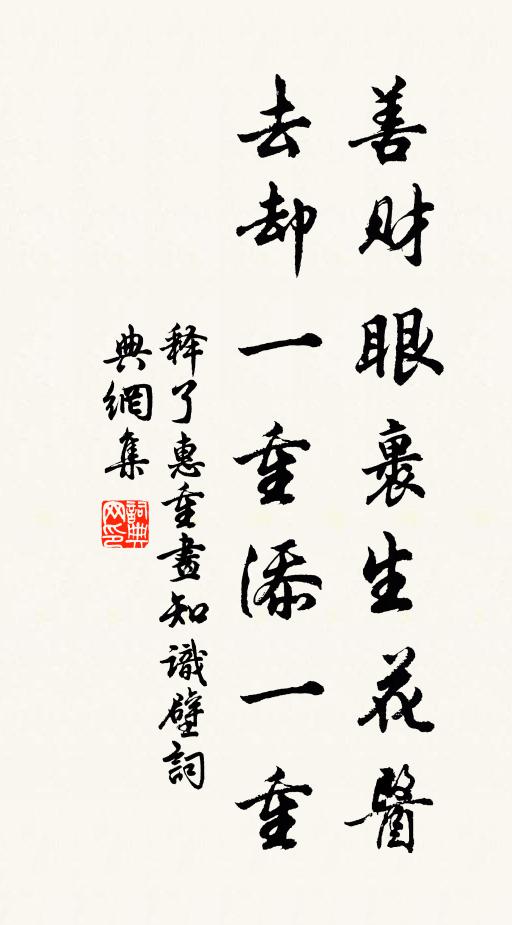 善财眼裏生花醫
去却一重添一重
释了惠重畫知識壁詞
典網集
詞典网印